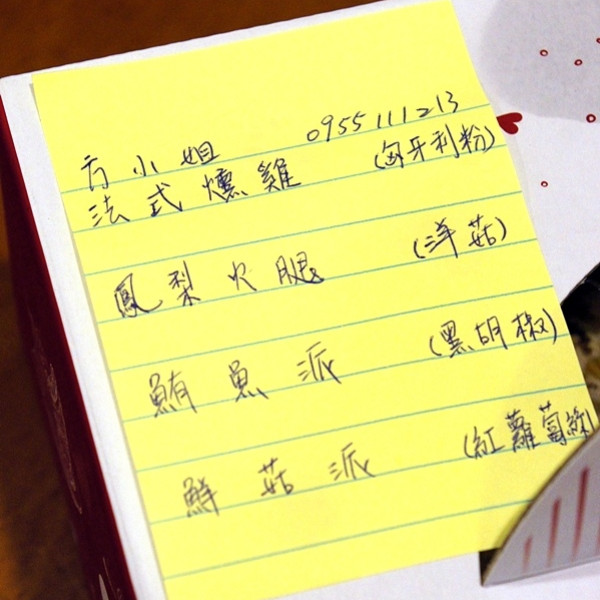 方小姐 0955111213
法式燻雞 (匈牙利粉)
鳳梨火腿 (洋菇)
鮪魚派 (黑胡椒)
鮮菇派 (紅蘿蔔絲)